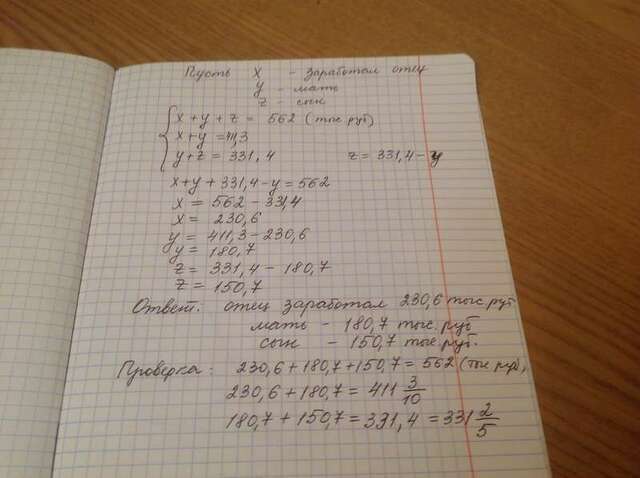 Пусть x - заработал отец
y - мать
z - сын
x + y + z = 562 (тыс руб)
x + y = 411,3
y + z = 331,4 z = 331,4 - y
x + y + 331,4 - y = 562
x = 562 - 331,4
x = 230,6
y = 411,3 - 230,6
y = 180,7
z = 331,4 - 180,7
z = 150,7
Ответ: отец заработал 230,6 тыс руб
мать - 180,7 тыс. руб
сын - 150,7 тыс. руб.
Проверка: 230,6 + 180,7 + 150,7 = 562 (тыс руб),
230,6 + 180,7 = 411 3/10
180,7 + 150,7 = 331,4 = 331 2/5